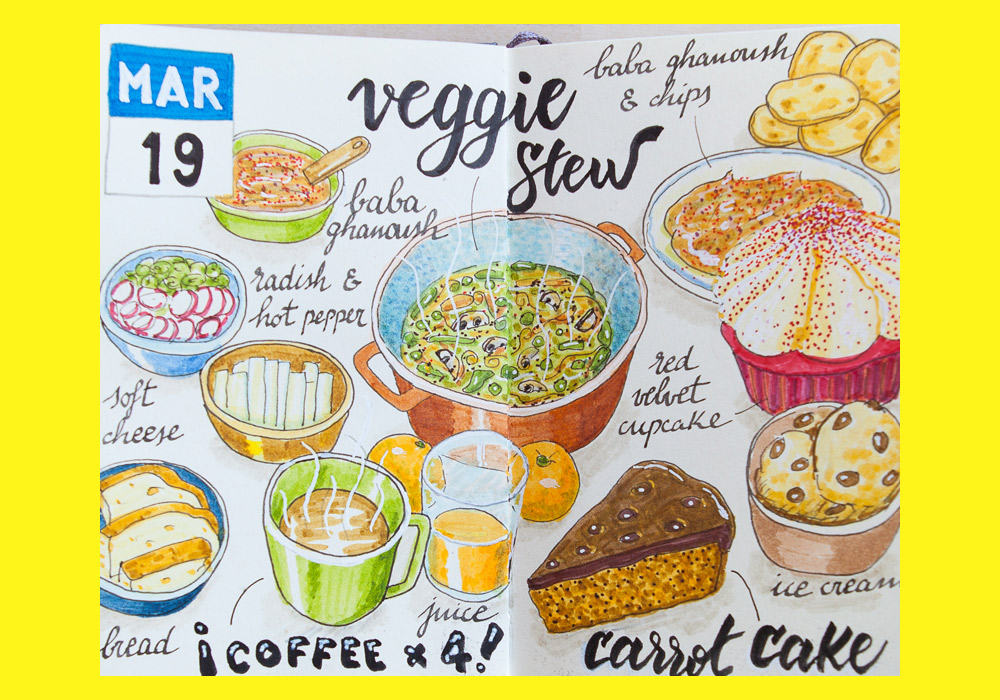 MAR
19
veggie
stew
baba ghanoush
& chips
baba
ghanoush
radish &
hot pepper
soft
cheese
red
velvet
cupcake
bread
¡COFFEE x 4!
juice
ice cream
carrot cake